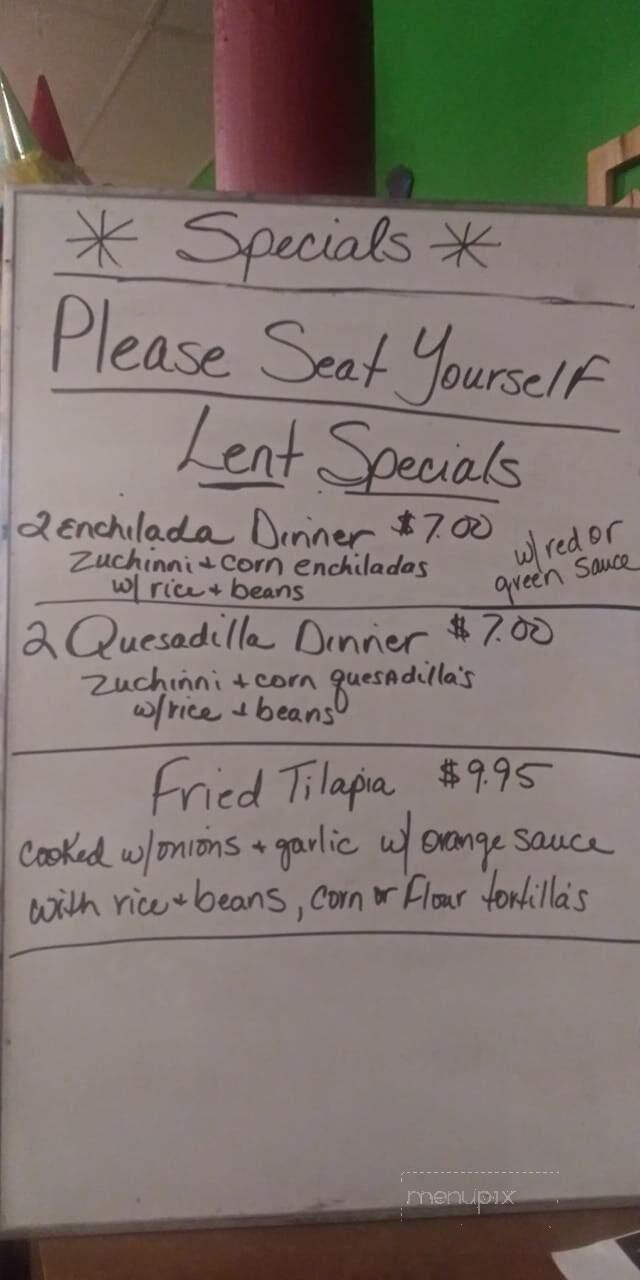 * Specials *
Please Seat Yourself
Lent Specials
2 Enchilada Dinner $7.00
Zuchinni + corn enchiladas
w/ rice + beans
w/ red or
green sauce
2 Quesadilla Dinner $7.00
Zuchinni + corn quesadilla's
w/rice + beans
Fried Tilapia $9.95
cooked w/onions + garlic w/ orange sauce
with rice + beans, corn or flour tortilla's
menupix